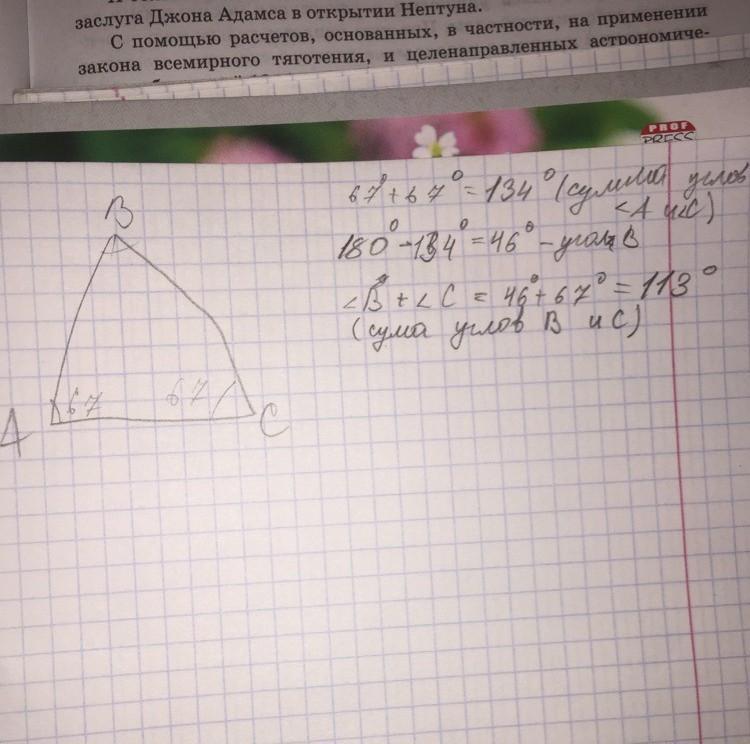 заслуга Джона Адамса в открытии Нептуна.
С помощью расчетов, основанных, в частности, на применении
закона всемирного тяготения, и целенаправленных астрономиче-
PROF
PRESS
67°+67°=134° (сумма углов
<A и <C)
180°-134°=46° - угол B
<B + <C = 46°+67°=113°
(сума углов B и C)
B
67 67
A
C